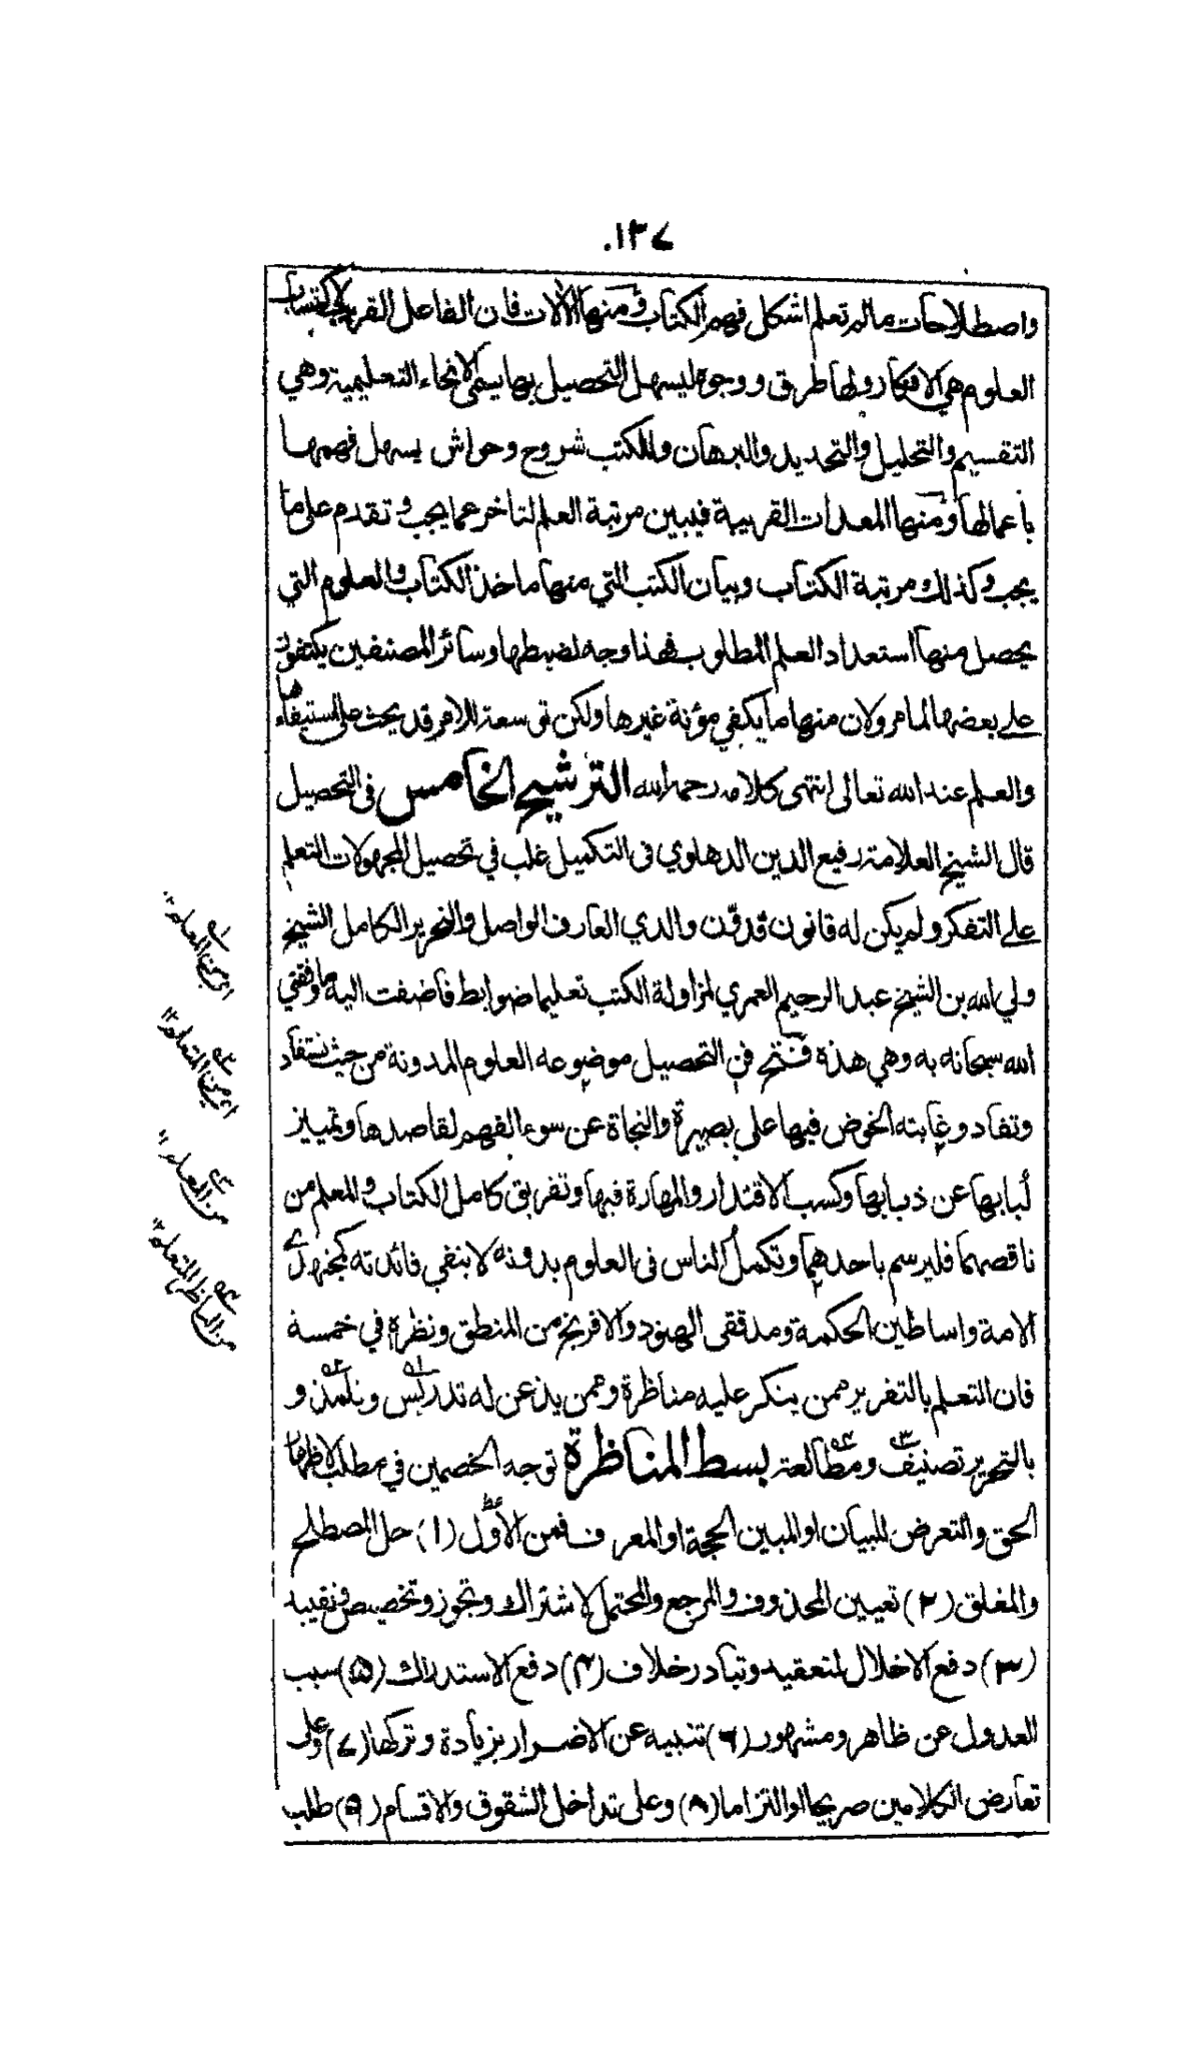 ١٣٧
واصطلاحات مالم تعلم اشكل فهم الكتاب ومنها الآلات فان الفاعل القريب لاكتساب
العلوم هي الافكار ولها طرق ووجوه ليسهل التحصيل بها يسمى الانحاء التعليمية وهي
التقسيم والتحليل والتحديد والبرهان وللكتب شروح وحواش يسهل فهمها
باعمالها ومنها المعدات القريبة فيبين مرتبة العلم لتاخر عما يجب وتقدم على ما
يجب وكذلك مرتبة الكتاب وبيان الكتب التي منها ماخذ الكتاب والعلوم التي
يحصل منها استعداد العلم المطلوب فهذا وجه لضبطها وسائر المصنفين يكتفون
على بعضها لما مر ولان منها ما يكفي مؤنة غيرها ولكن توسعة للامر قد يحث على استيفاءها
والعلم عند الله تعالى انتهى كلامه رحمه الله الترشيح الخامس في التحصيل
قال الشيخ العلامة رفيع الدين الدهلوي في التكميل غلب في تحصيل المجهولات التعلم
على التفكر ولم يكن له قانون فدوّن والدي العارف الواصل والنحرير الكامل الشيخ
ولي الله بن الشيخ عبد الرحيم العمري لمزاولة الكتب تعليما ضوابط فاضفت اليه ما وفقني
الله سبحانه به وهي هذه فتح في التحصيل موضوعه العلوم المدونة من حيث تستفاد
وتفاد وغايته الخوض فيها على بصيرة والنجاة عن سوء الفهم لمقاصدها وتمييز
لبابها عن ذبابها وكسب الاقتدار والمهارة فيها وتفريق كامل الكتاب والمعلم من
ناقصهما فليرسم باحدهما وتكمل الناس في العلوم بدونه لا ينفي فائدته كمجتهدي
الامة واساطين الحكمة ومدققي الهنود والافرنج من المنطق ونظره في خمسة
فان التعلم بالتقرير ممن ينكر عليه مناظرة وممن يذعن له تدريس وتلمذ و
بالتحرير تصنيف ومطالعة بسط المناظرة توجه الخصمين في مطلب لاظهار
الحق والتعرض للبيان او المبين الحجة او المعرف فمن الاول (١) حل المصطلح
والمغلق (٢) تعيين المحذوف والمرجع والمحتمل لاشتراك وتجوز وتخصيص وتقييد
(٣) دفع الاخلال لتعقيد وتبادر خلاف (٤) دفع الاستدراك (٥) سبب
العدول عن ظاهر ومشهور (٦) تنبيه عن الاضرار بزيادة وتركها (٧) وعلى
تعارض الكلامين صريحا او التزاما (٨) وعلى تداخل الشقوق والاقسام (٩) طلب
اي من المعلم ١٢
اي من المتعلم ١٢
من المعلم ١٢
من الناظر المتعلم ١٢